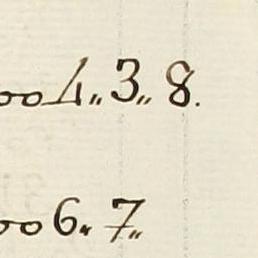 oo 4 „ 3 „ 8.
oo 6 „ 7 „